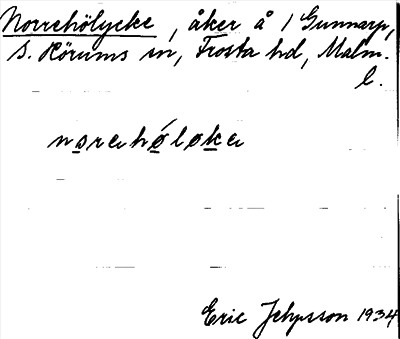 Norrehölycke, åker å 1 Gunnarp,
S. Hörums sn, Frosta hd, Malm.
l.
norahóløka
Eric Jepsson 1934